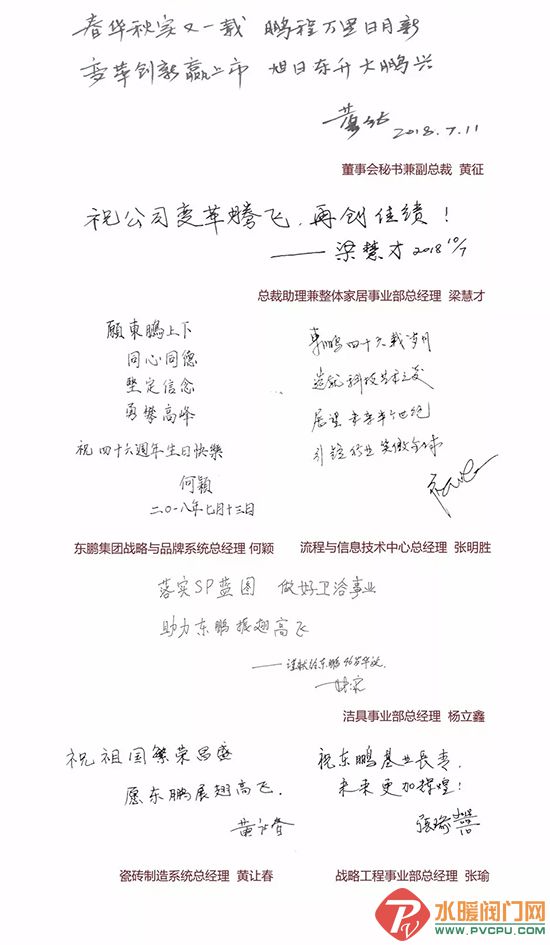 春华秋实又一载 鹏程万里日月新
变革创新赢上市 旭日东升大鹏兴
2018.7.11
董事会秘书兼副总裁 黄征
祝公司变革腾飞,再创佳绩!
——梁慧才 2018 10/7
总裁助理兼整体家居事业部总经理 梁慧才
願東鵬上下
同心同德
坚定信念
勇攀高峰
祝四十六週年生日快樂
何穎
二〇一八年七月十三日
东鹏集团战略与品牌系统总经理 何颖
東鹏四十六载岁月
造就科技艺术之美
展望未来半个世纪
引领行业笑傲全球
流程与信息技术中心总经理 张明胜
落实SP蓝图 做好卫浴事业
助力东鹏振翅高飞
洁具事业部总经理 杨立鑫
祝祖国繁荣昌盛
愿东鹏展翅高飞.
黄让春
瓷砖制造系统总经理 黄让春
祝东鹏基业長青,
未来更加辉煌!
張瑜
战略工程事业部总经理 张瑜
PV 水暖阀门网
WWW.PVCPU.COM